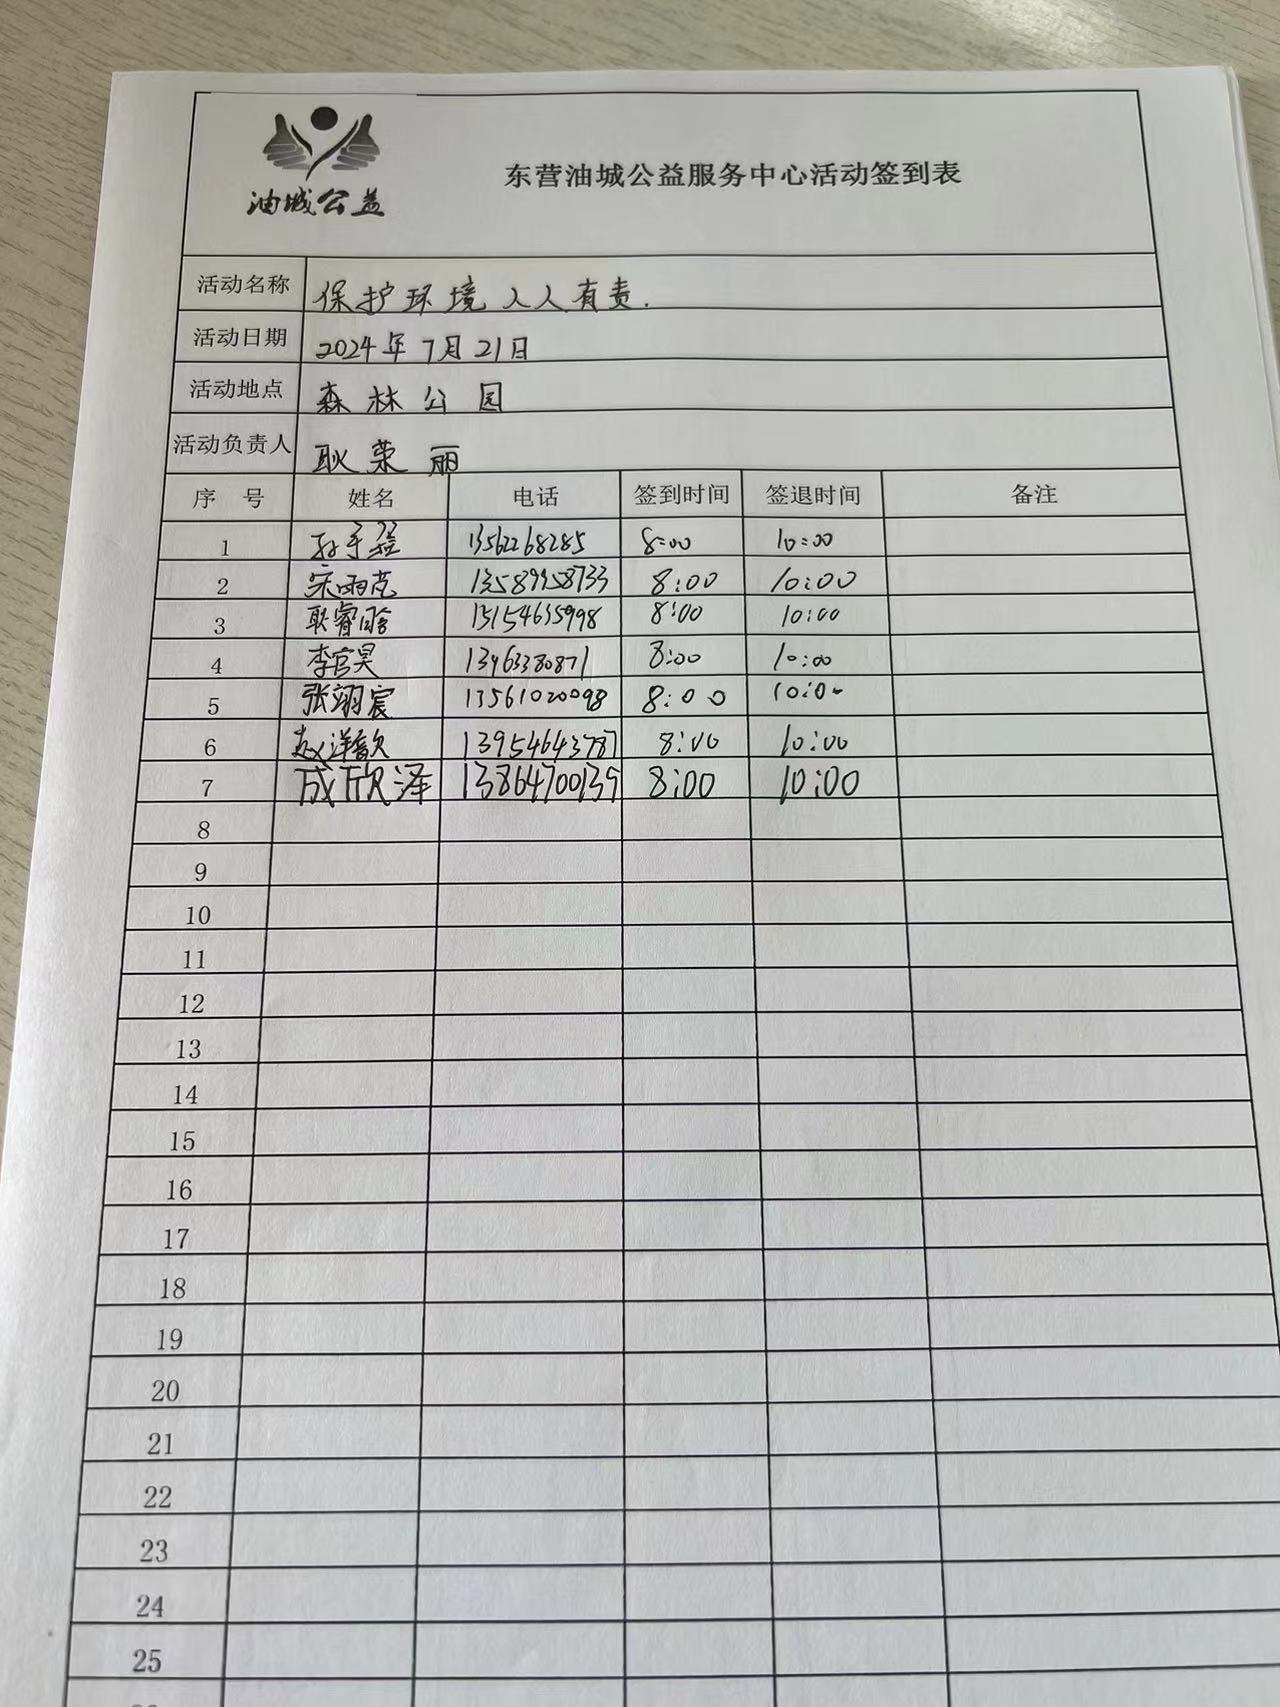 油城公益
东营油城公益服务中心活动签到表
活动名称 保护环境人人有责.
活动日期 2024年7月21日
活动地点 森林公园
活动负责人 耿荣丽
序 号 姓名 电话 签到时间 签退时间 备注
1 13562268285 8:00 10:00
2 宋雨芫 13589958733 8:00 10:00
3 耿睿晗 15154635998 8:00 10:00
4 李官昊 8:00 10:00
5 张翊宸 13561020098 8:00 10:00
6 赵洋歆 13954643787 8:00 10:00
7 成欣泽 13864700139 8:00 10:00
8
9
10
11
12
13
14
15
16
17
18
19
20
21
22
23
24
25